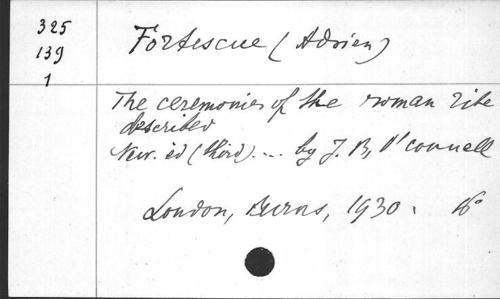 325
139
1
Fortescue (Adrien)
The ceremonies of the roman rite
described
New. ed (third). ... by J. B, O'connell
London, Burns, 1930. 16°